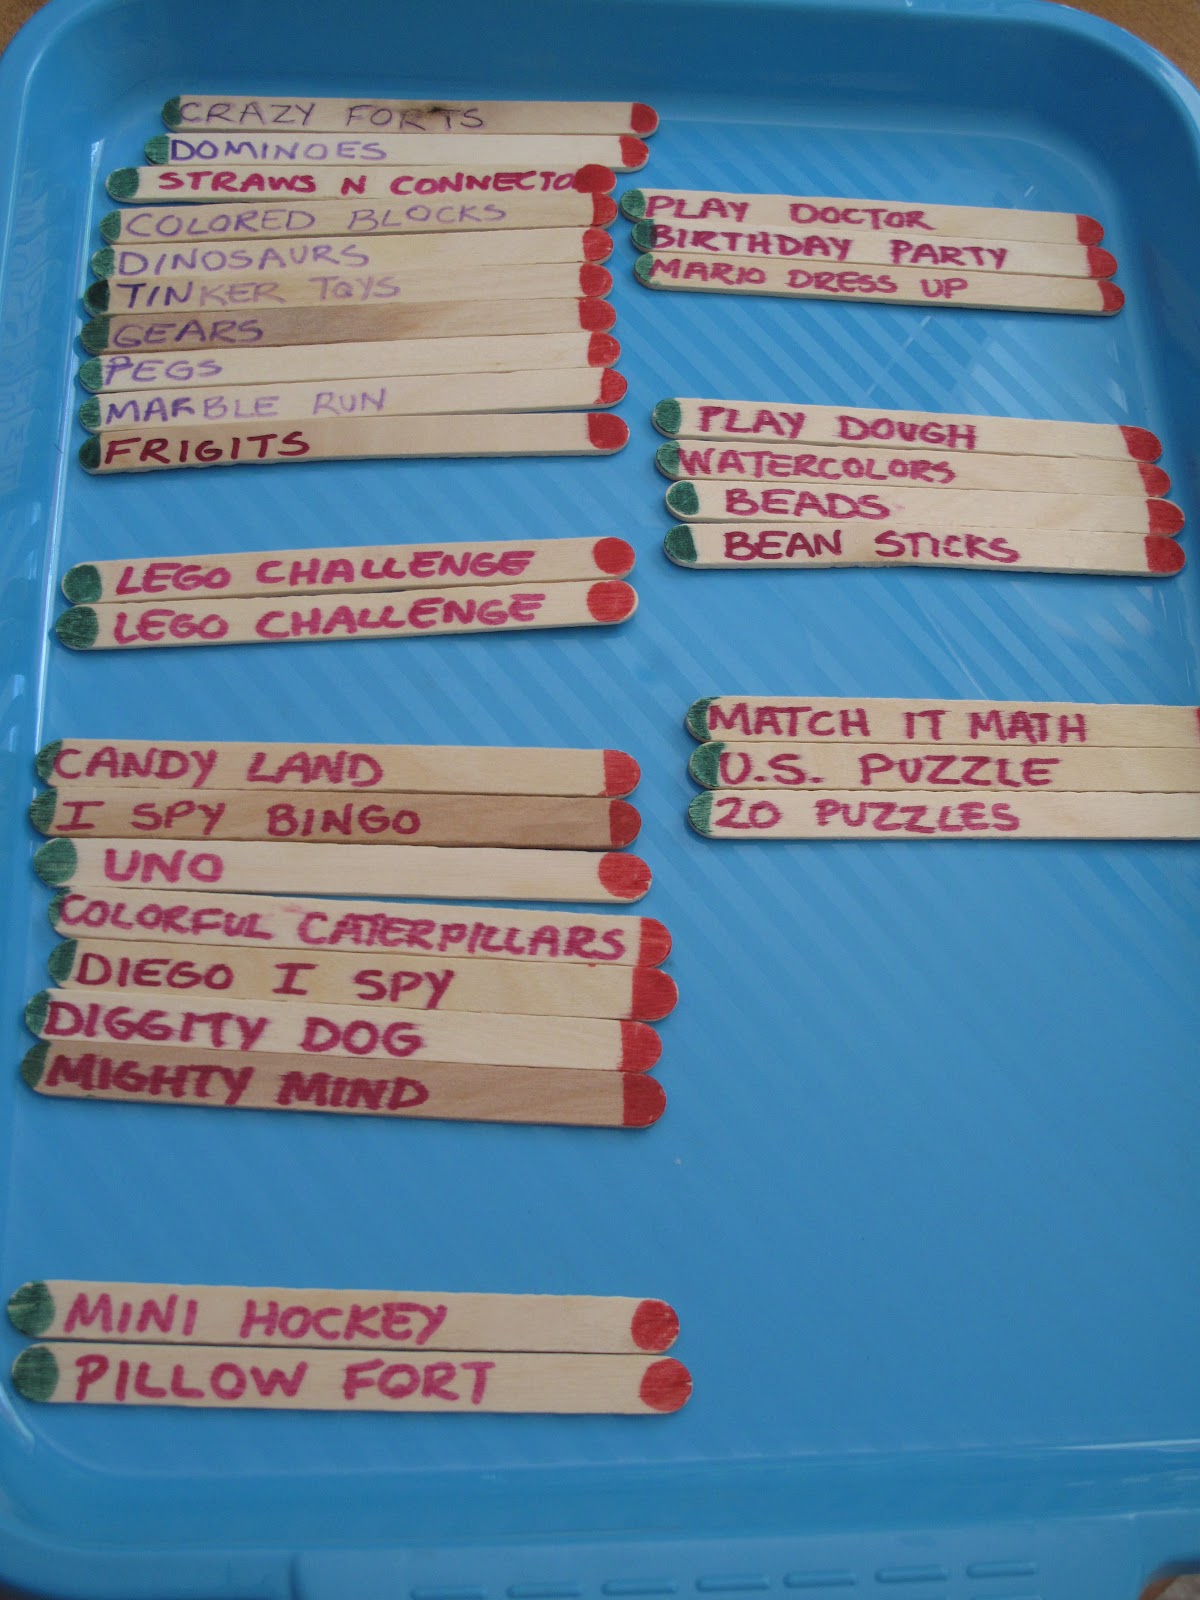 CRAZY FORTS
DOMINOES
STRAWS N CONNECTO
COLORED BLOCKS
DINOSAURS
TINKER TOYS
GEARS
PEGS
MARBLE RUN
FRIGITS
LEGO CHALLENGE
LEGO CHALLENGE
CANDY LAND
I SPY BINGO
UNO
COLORFUL CATERPILLARS
DIEGO I SPY
DIGGITY DOG
MIGHTY MIND
MINI HOCKEY
PILLOW FORT
PLAY DOCTOR
BIRTHDAY PARTY
MARIO DRESS UP
PLAY DOUGH
WATERCOLORS
BEADS
BEAN STICKS
MATCH IT MATH
U.S. PUZZLE
20 PUZZLES